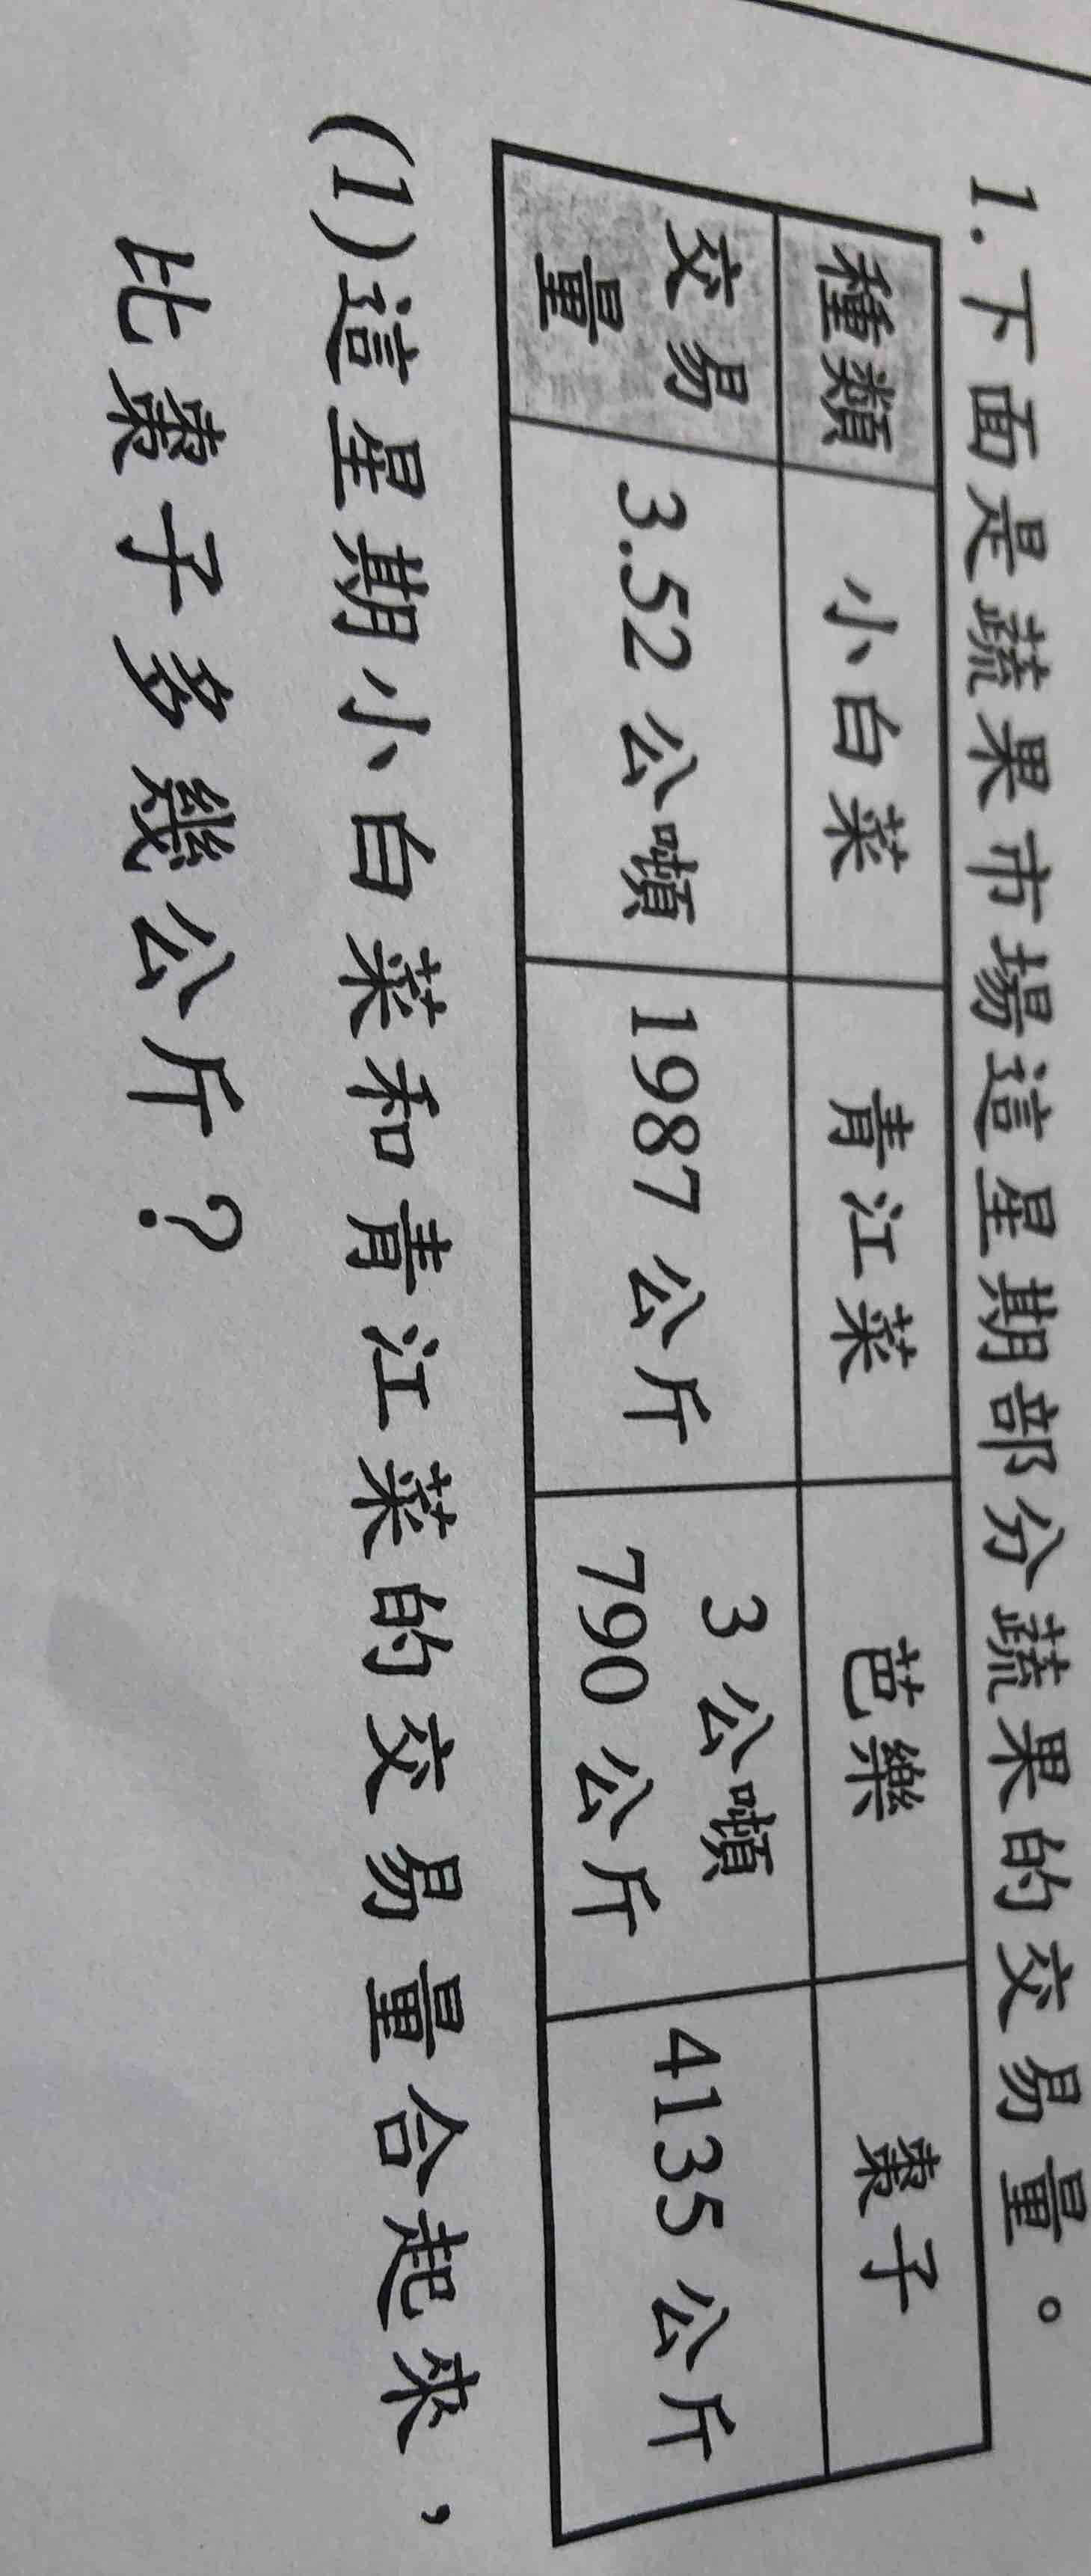 1.下面是蔬果市場這星期部分蔬果的交易量。
種類 小白菜 青江菜 芭樂 棗子
交易量 3.52 公噸 1987 公斤 3 公噸 790 公斤 4135 公斤
(1)這星期小白菜和青江菜的交易量合起來，
比棗子多幾公斤？